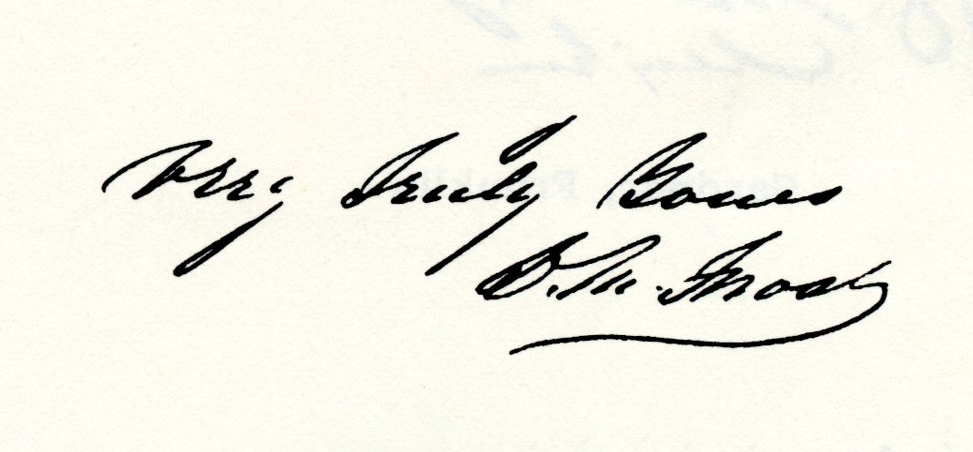 Very Truly Yours
D. M. Frost